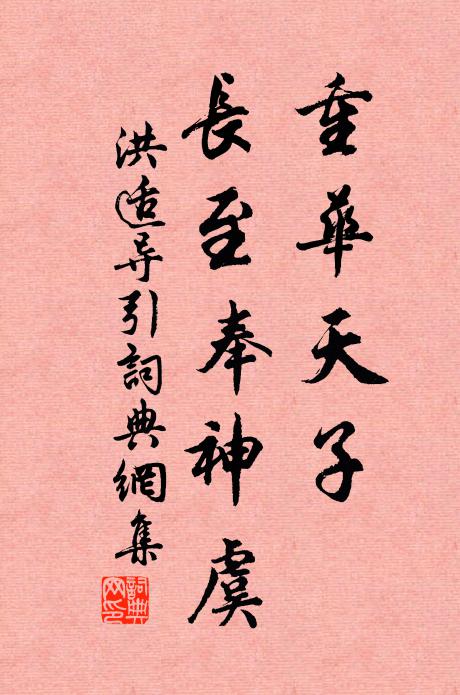 重華天子
長至奉神虞
洪适导引詞典網集
詞典
网印